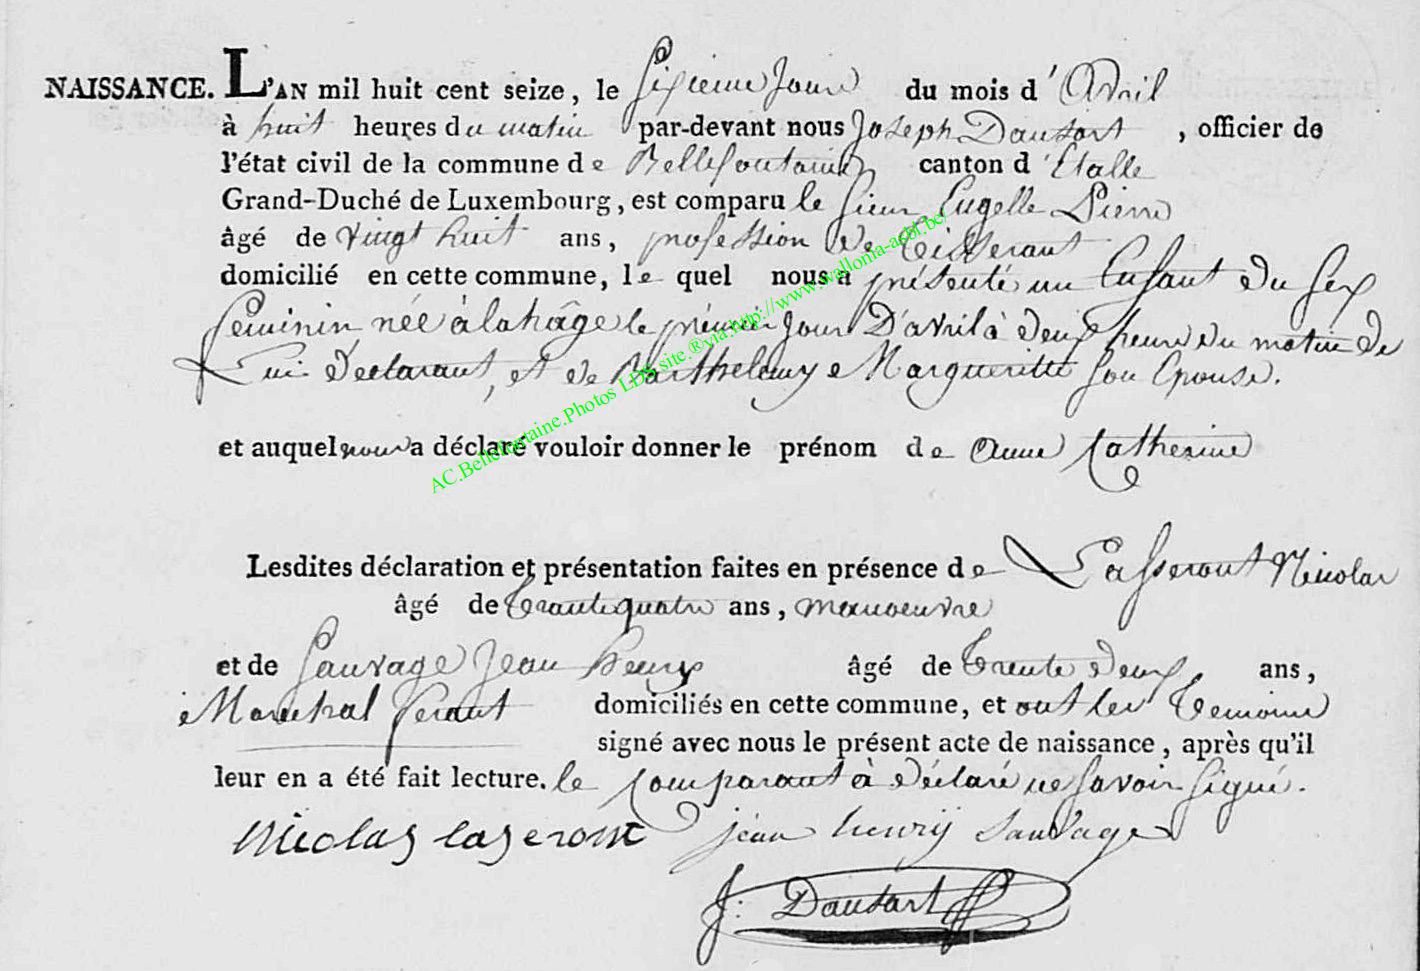 NAISSANCE. L'AN mil huit cent seize, le sixieme jour du mois d'Avril
à huit heures du matin par-devant nous Joseph Dausort, officier de
l'état civil de la commune de Bellefontaine canton d'Etalle
Grand-Duché de Luxembourg, est comparu le sieur Eugelle Pierre
âgé de vingt huit ans, profession de tisserant
domicilié en cette commune, le quel nous a présenté un Enfant du sex
feminin née à lahâge le prémier jour D'avril à deux heure du matin de
Lui Déclarant, et de Barthelemy Margueritte son Epouse.
et auquel nous a déclaré vouloir donner le prénom de Anne Catherine
AC.Bellefontaine.Photos LDS site.®via.http://www.wallonia-asbl.be/
Lesdites déclaration et présentation faites en présence de Lasseront Nicolas
âgé de trante quatre ans, manoeuvre
et de Sauvage Jean henry âgé de trente deux ans,
Marechal ferant domiciliés en cette commune, et ont les temoins
signé avec nous le présent acte de naissance, après qu'il
leur en a été fait lecture. le comparant à déclaré ne savoir signé.
Nicolas laseront jean henrij Sauvage
J: Dausart